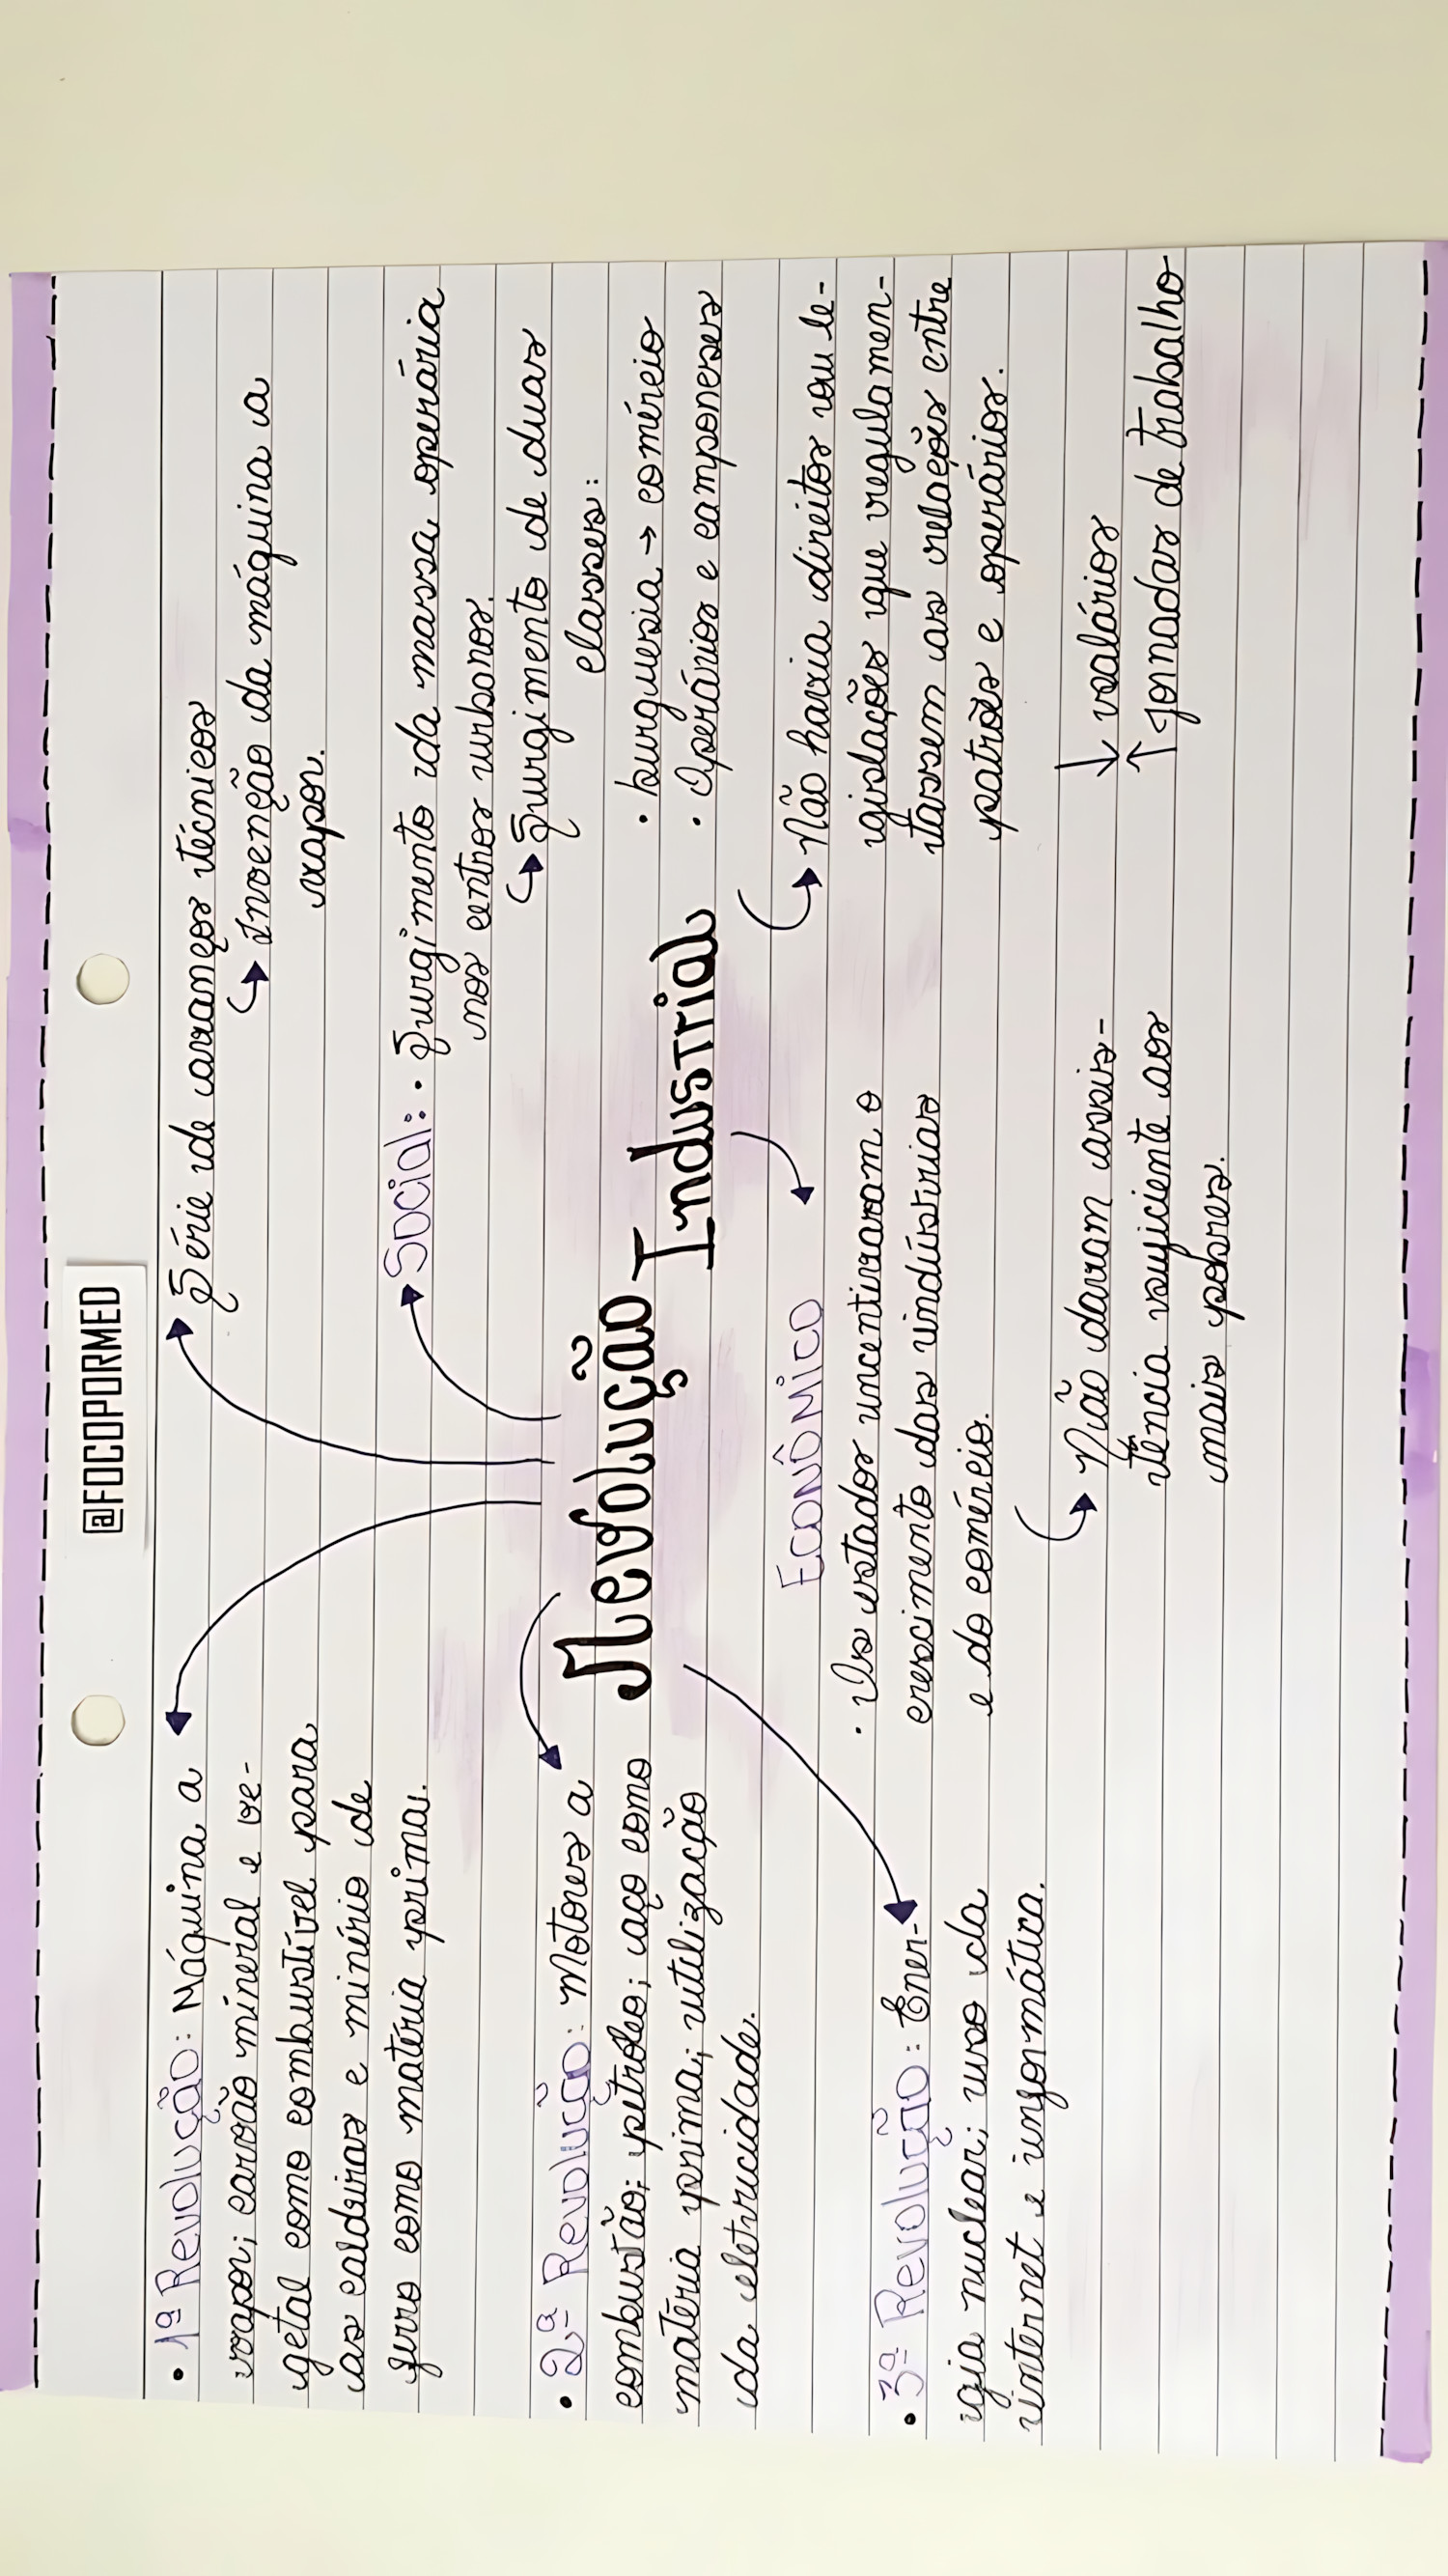 @FOCOPORMED
• 1ª Revolução: Máquina a
vapor; carvão mineral e ve-
getal como combustível para
as caldeiras e minério de
ferro como matéria prima.
• 2ª Revolução: Motores a
combustão; petróleo; aço como
matéria prima; utilização
da eletricidade.
• 3ª Revolução: Ener-
gia nuclear; uso da
internet e informática.
Revolução
Industrial
Série de avanços técnicos
Invenção da máquina a
vapor.
Social: • Surgimento da massa operária
nos centros urbanos.
Surgimento de duas
classes:
• burguesia → comércio
• Operários e camponeses
Não havia direitos ou le-
gislações que regulamen-
tassem as relações entre
patrões e operários.
↓ salários
↑ Jornadas de trabalho
Econômico
• Os estados incentivaram o
crescimento das indústrias
e do comércio.
Não davam assis-
tência suficiente aos
mais pobres.